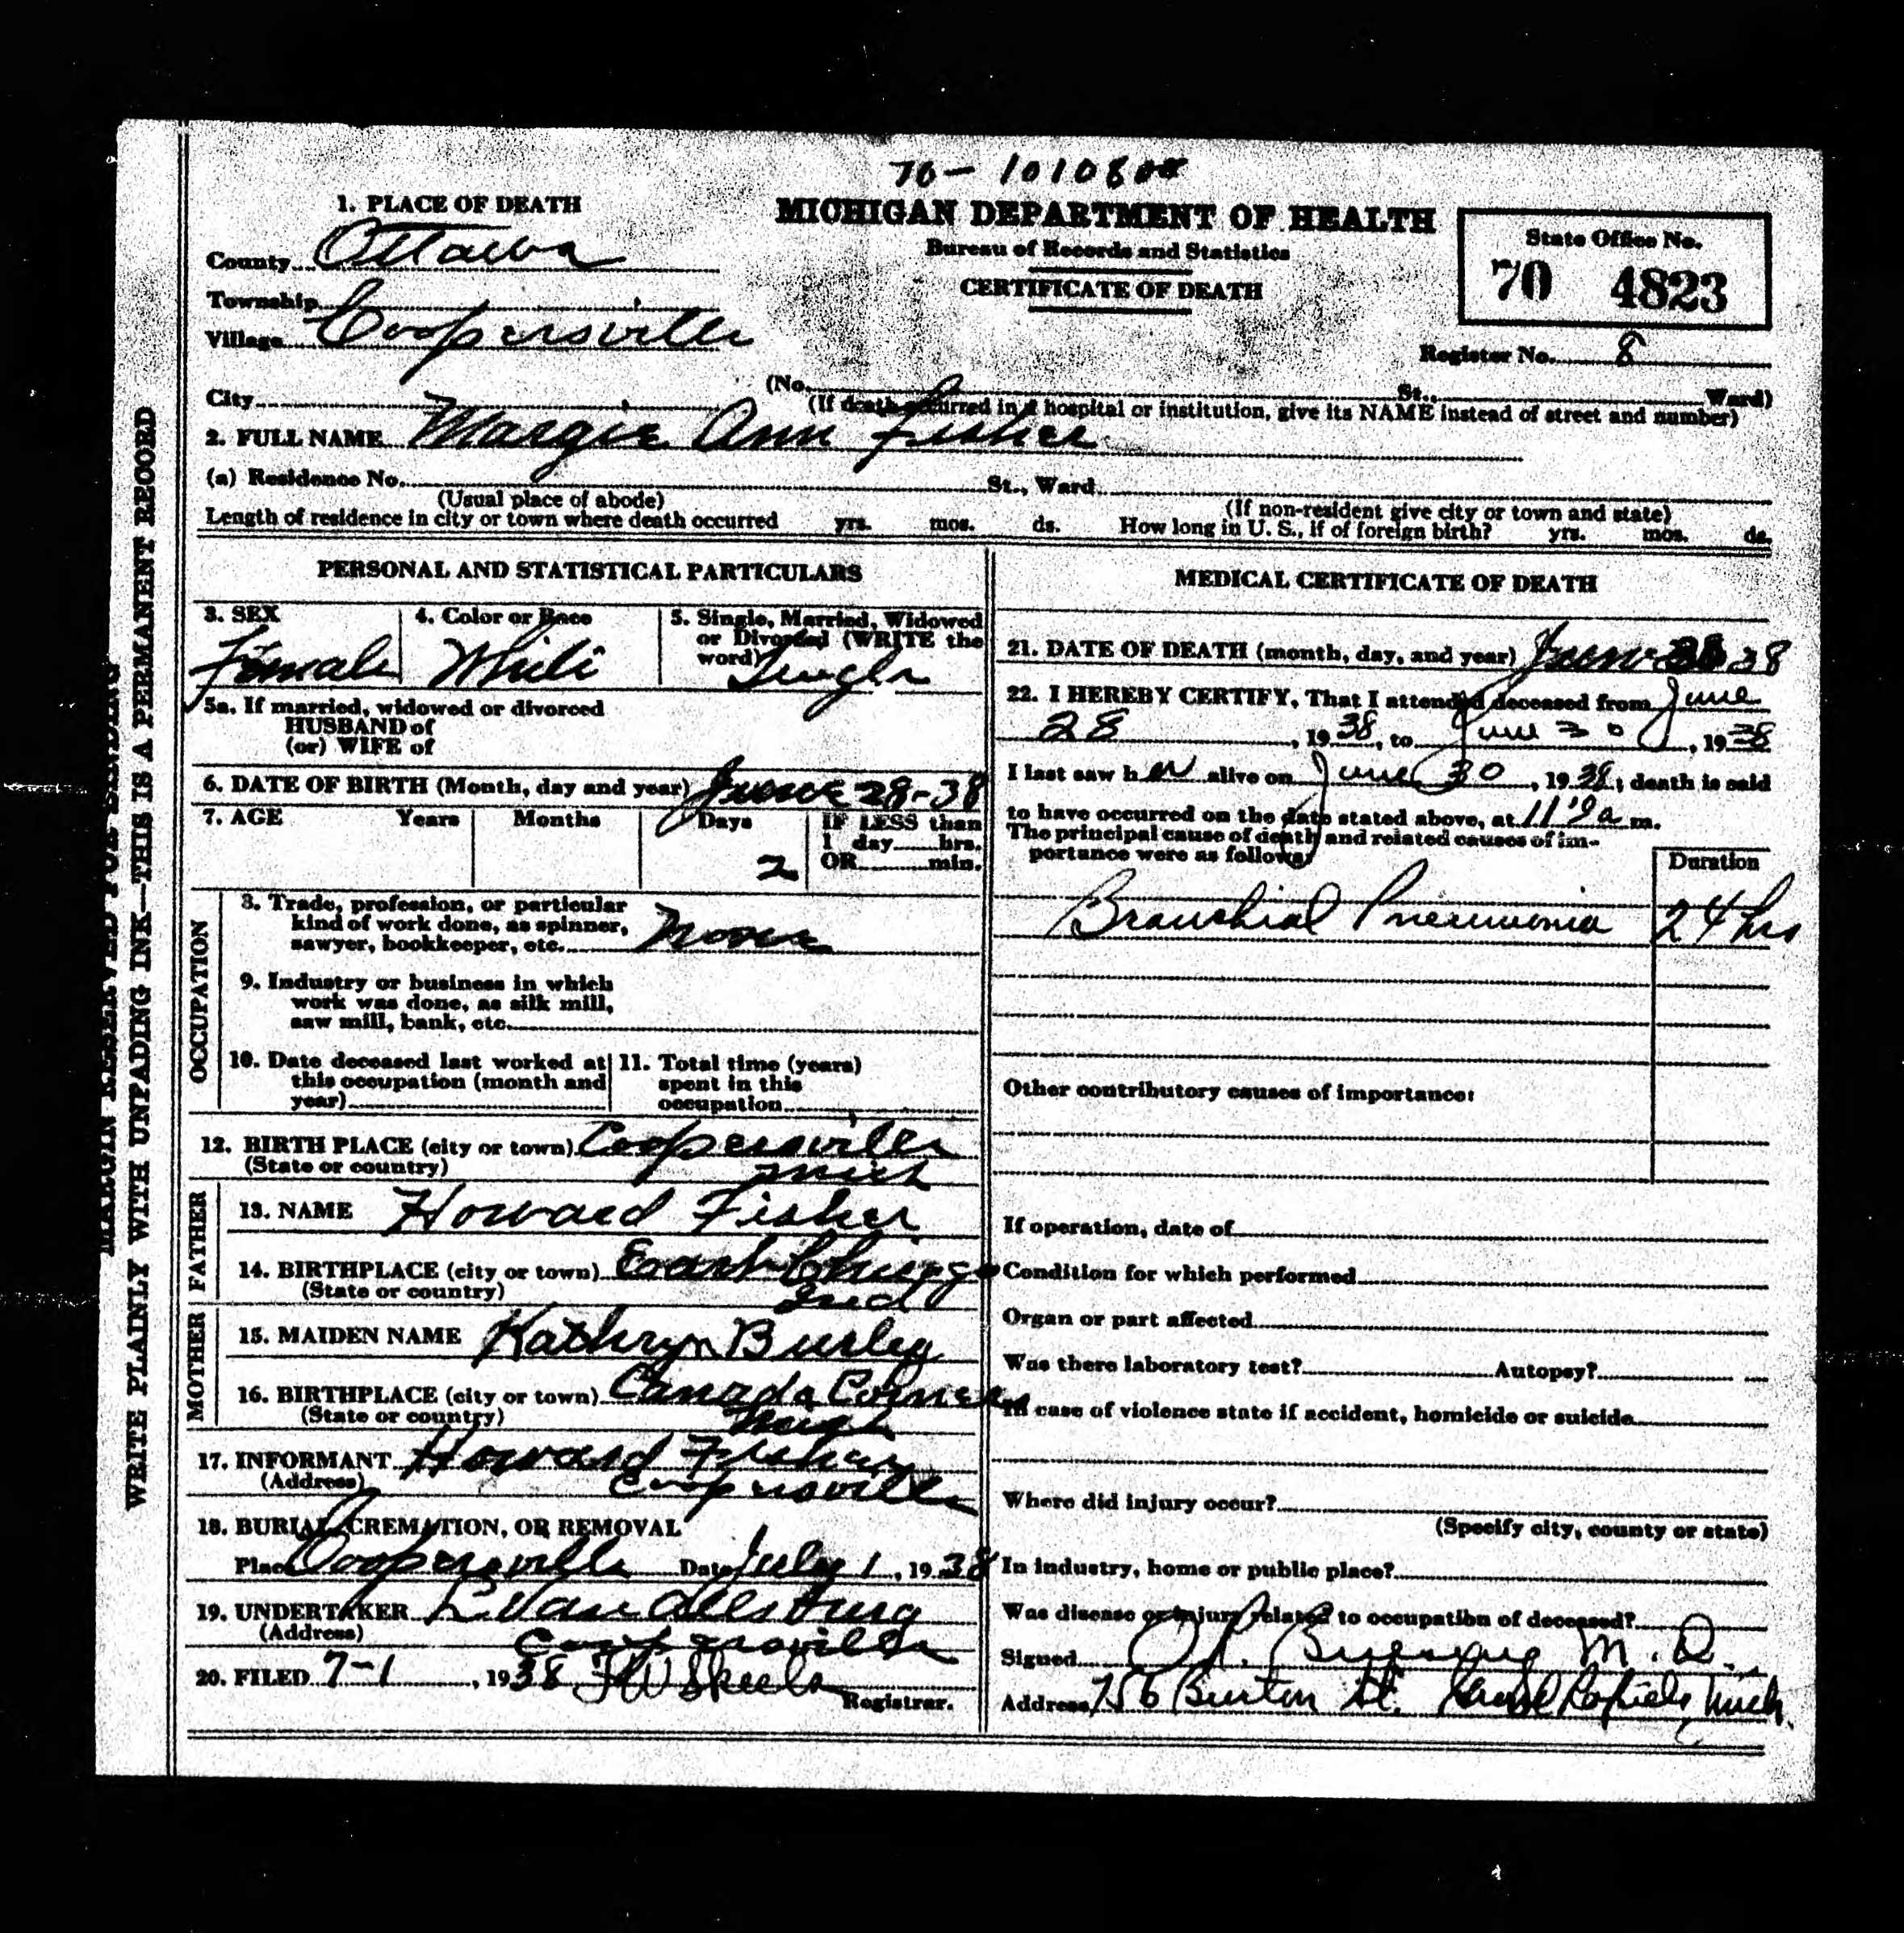 70-1010800
1. PLACE OF DEATH
MICHIGAN DEPARTMENT OF HEALTH
Bureau of Records and Statistics
CERTIFICATE OF DEATH
State Office No.
70 4823
County Ottawa
Township
Village Coopersville
Register No. 8
City (No. St., Ward)
(If death occurred in a hospital or institution, give its NAME instead of street and number)
2. FULL NAME Margie Ann Fisher
(a) Residence No. St., Ward
(Usual place of abode) (If non-resident give city or town and state)
Length of residence in city or town where death occurred yrs. mos. ds. How long in U. S., if of foreign birth? yrs. mos. ds.
WRITE PLAINLY WITH UNFADING INK—THIS IS A PERMANENT RECORD
MARGIN RESERVED FOR BINDING
PERSONAL AND STATISTICAL PARTICULARS
3. SEX
Female
4. Color or Race
White
5. Single, Married, Widowed
or Divorced (WRITE the
word) Single
5a. If married, widowed or divorced
HUSBAND of
(or) WIFE of
6. DATE OF BIRTH (Month, day and year) June 28-38
7. AGE Years Months Days IF LESS than
1 day hrs.
2 OR min.
OCCUPATION
8. Trade, profession, or particular
kind of work done, as spinner,
sawyer, bookkeeper, etc. None
9. Industry or business in which
work was done, as silk mill,
saw mill, bank, etc.
10. Date deceased last worked at
this occupation (month and
year)
11. Total time (years)
spent in this
occupation
12. BIRTH PLACE (city or town) Coopersville
(State or country) Mich
FATHER
13. NAME Howard Fisher
14. BIRTHPLACE (city or town) East Chicago
(State or country) Ind
MOTHER
15. MAIDEN NAME Kathryn Burley
16. BIRTHPLACE (city or town) Canada Corners
(State or country) Mich
17. INFORMANT Howard Fisher
(Address) Coopersville
18. BURIAL, CREMATION, OR REMOVAL
Place Coopersville Date July 1, 1938
19. UNDERTAKER L Van Allsburg
(Address) Coopersville
20. FILED 7-1, 1938 FW Skeels Registrar.
MEDICAL CERTIFICATE OF DEATH
21. DATE OF DEATH (month, day, and year) June 38
22. I HEREBY CERTIFY, That I attended deceased from June
28, 1938, to June 30, 1938
I last saw her alive on June 30, 1938; death is said
to have occurred on the date stated above, at 11:0 a m.
The principal cause of death and related causes of im-
portance were as follows: Duration
Bronchial Pneumonia 24 hrs
Other contributory causes of importance:
If operation, date of
Condition for which performed
Organ or part affected
Was there laboratory test? Autopsy?
In case of violence state if accident, homicide or suicide
Where did injury occur?
(Specify city, county or state)
In industry, home or public place?
Was disease or injury related to occupation of deceased?
Signed M.D.
Address 756 Burton St. Grand Rapids, Mich.